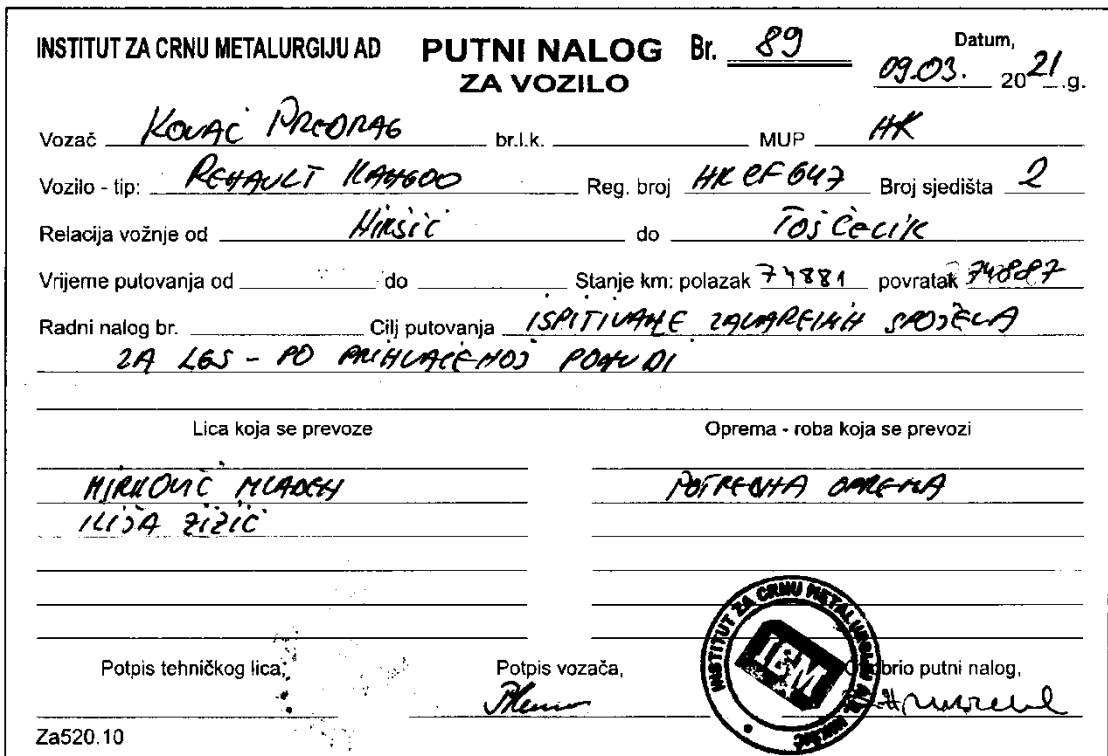 INSTITUT ZA CRNU METALURGIJU AD PUTNI NALOG Br. 89 Datum,
ZA VOZILO 09.03. 2021.g.
Vozač KOVAČ PREDRAG br.l.k. MUP NK
Vozilo - tip: RENAULT KANGOO Reg. broj NK CF 647 Broj sjedišta 2
Relacija vožnje od Nikšić do Tosčelik
Vrijeme putovanja od do Stanje km: polazak 74881 povratak 74887
Radni nalog br. Cilj putovanja ISPITIVANJE ZAVARENIH SPOJEVA
ZA LGS - PO PRIHVAĆENOJ PONUDI
Lica koja se prevoze Oprema - roba koja se prevozi
MIRKOVIĆ MLADEN POTREBNA OPREMA
ILIJA ZIZIĆ
Potpis tehničkog lica, Potpis vozača, Odobrio putni nalog,
INSTITUT ZA CRNU METALURGIJU A.D. NIKŠIĆ
Za520.10